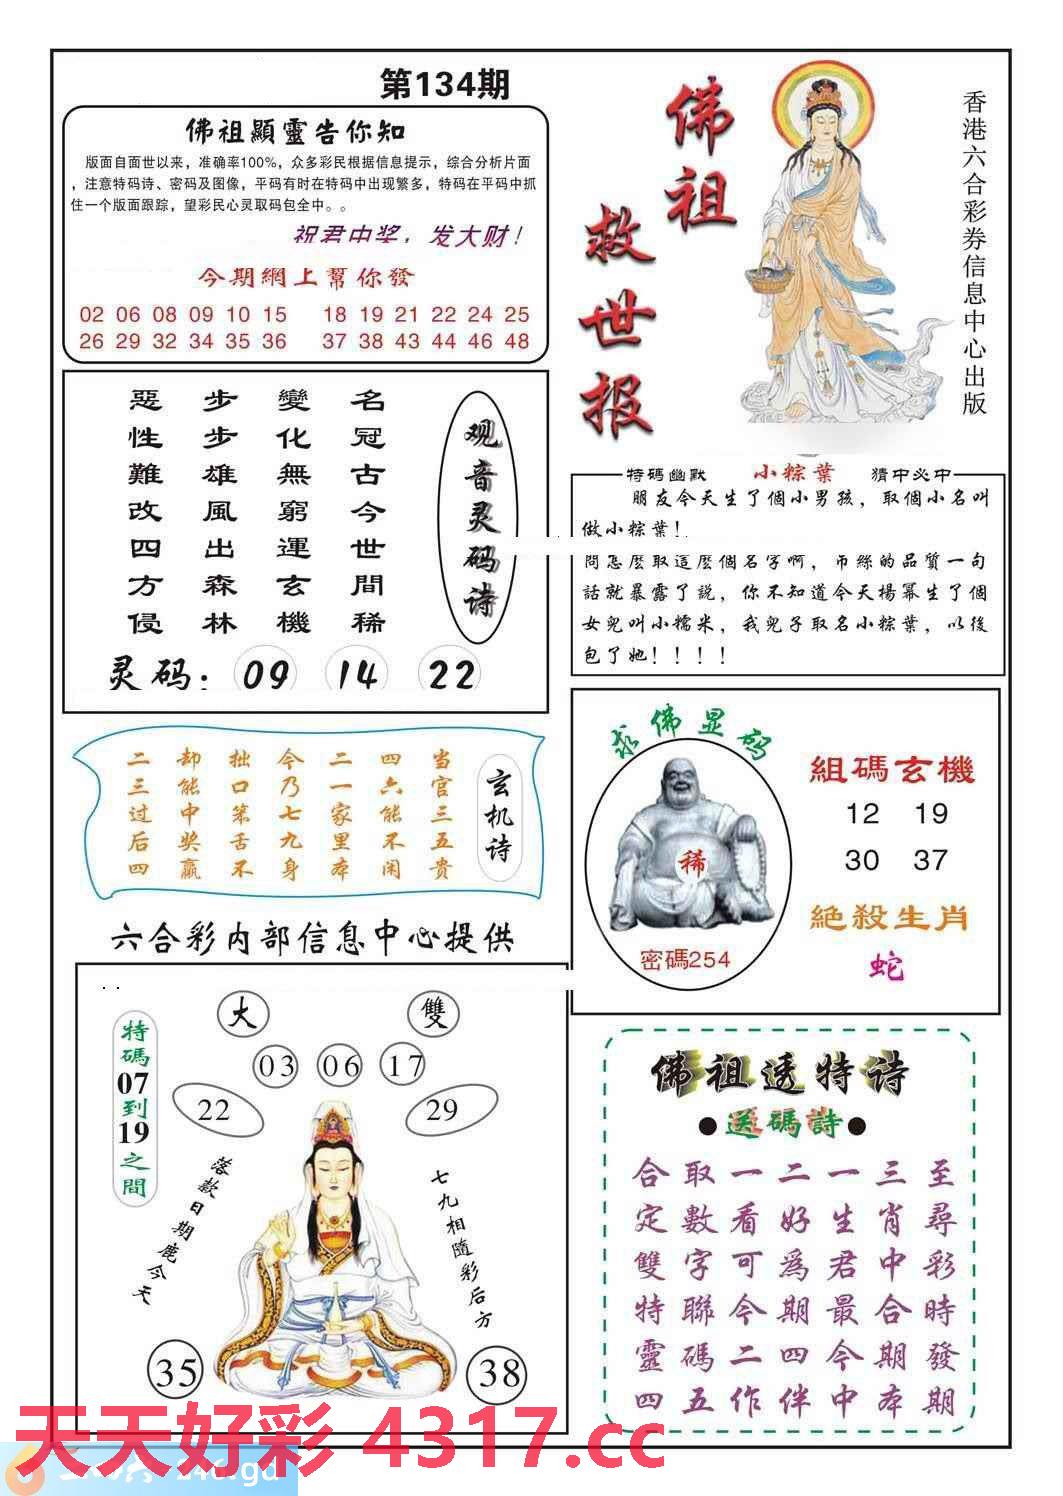 第134期
佛祖顯靈告你知
版面自面世以来，准确率100%，众多彩民根据信息提示，综合分析片面
，注意特码诗、密码及图像，平码有时在特码中出现繁多，特码在平码中抓
住一个版面跟踪，望彩民心灵取码包全中。。
祝君中奖，发大财！
今期網上幫你發
02 06 08 09 10 15 18 19 21 22 24 25
26 29 32 34 35 36 37 38 43 44 46 48
佛祖
救世报
香港六合彩券信息中心出版
观音灵码诗
名冠古今世間稀
變化無窮運玄機
步步雄風出森林
惡性難改四方侵
灵码： 09 14 22
特碼幽默 小粽葉 猜中必中
朋友今天生了個小男孩，取個小名叫
做小粽葉！
問怎麼取這麼個名字啊，币絲的品質一句
話就暴露了説，你不知道今天楊冪生了個
女兒叫小糯米，我兒子取名小粽葉，以後
包了她！！！！
玄机诗
当官三五贵
四六能不闲
二一家里本
今乃七九身
拙口笨舌不
却能中奖赢
二三过后四
求佛显码
稀
密碼254
組碼玄機
12 19
30 37
絕殺生肖
蛇
六合彩内部信息中心提供
特碼07到19之間
大 雙
03 06 17
22 29
落款日期鹿今天
七九相隨彩后方
35 38
佛祖透特诗
●送碼詩●
合取一二一三至
定數看好生肖尋
雙字可為君中彩
特聯今期最合時
靈碼二四今期發
四五作伴中本期
天天好彩 4317.cc
246.gd